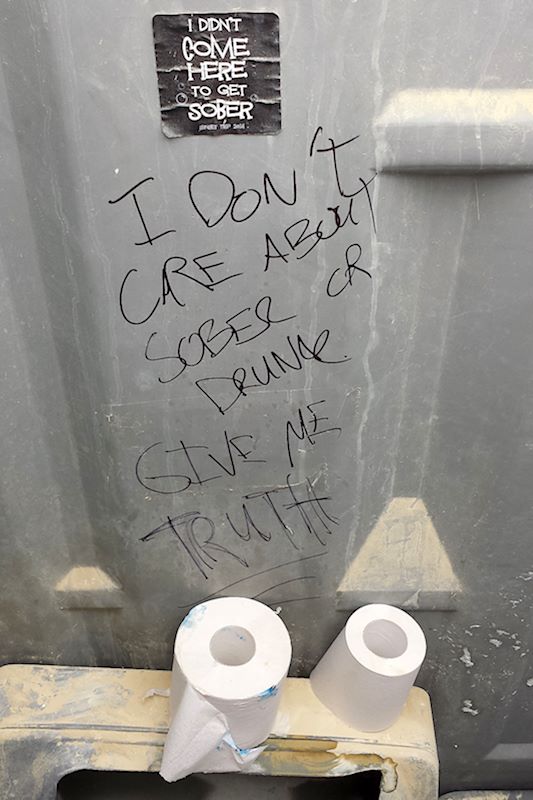 I DIDN'T
COME
HERE
TO GET
SOBER
I DON'T
CARE ABOUT
SOBER OR
DRUNK
GIVE ME
TRUTH